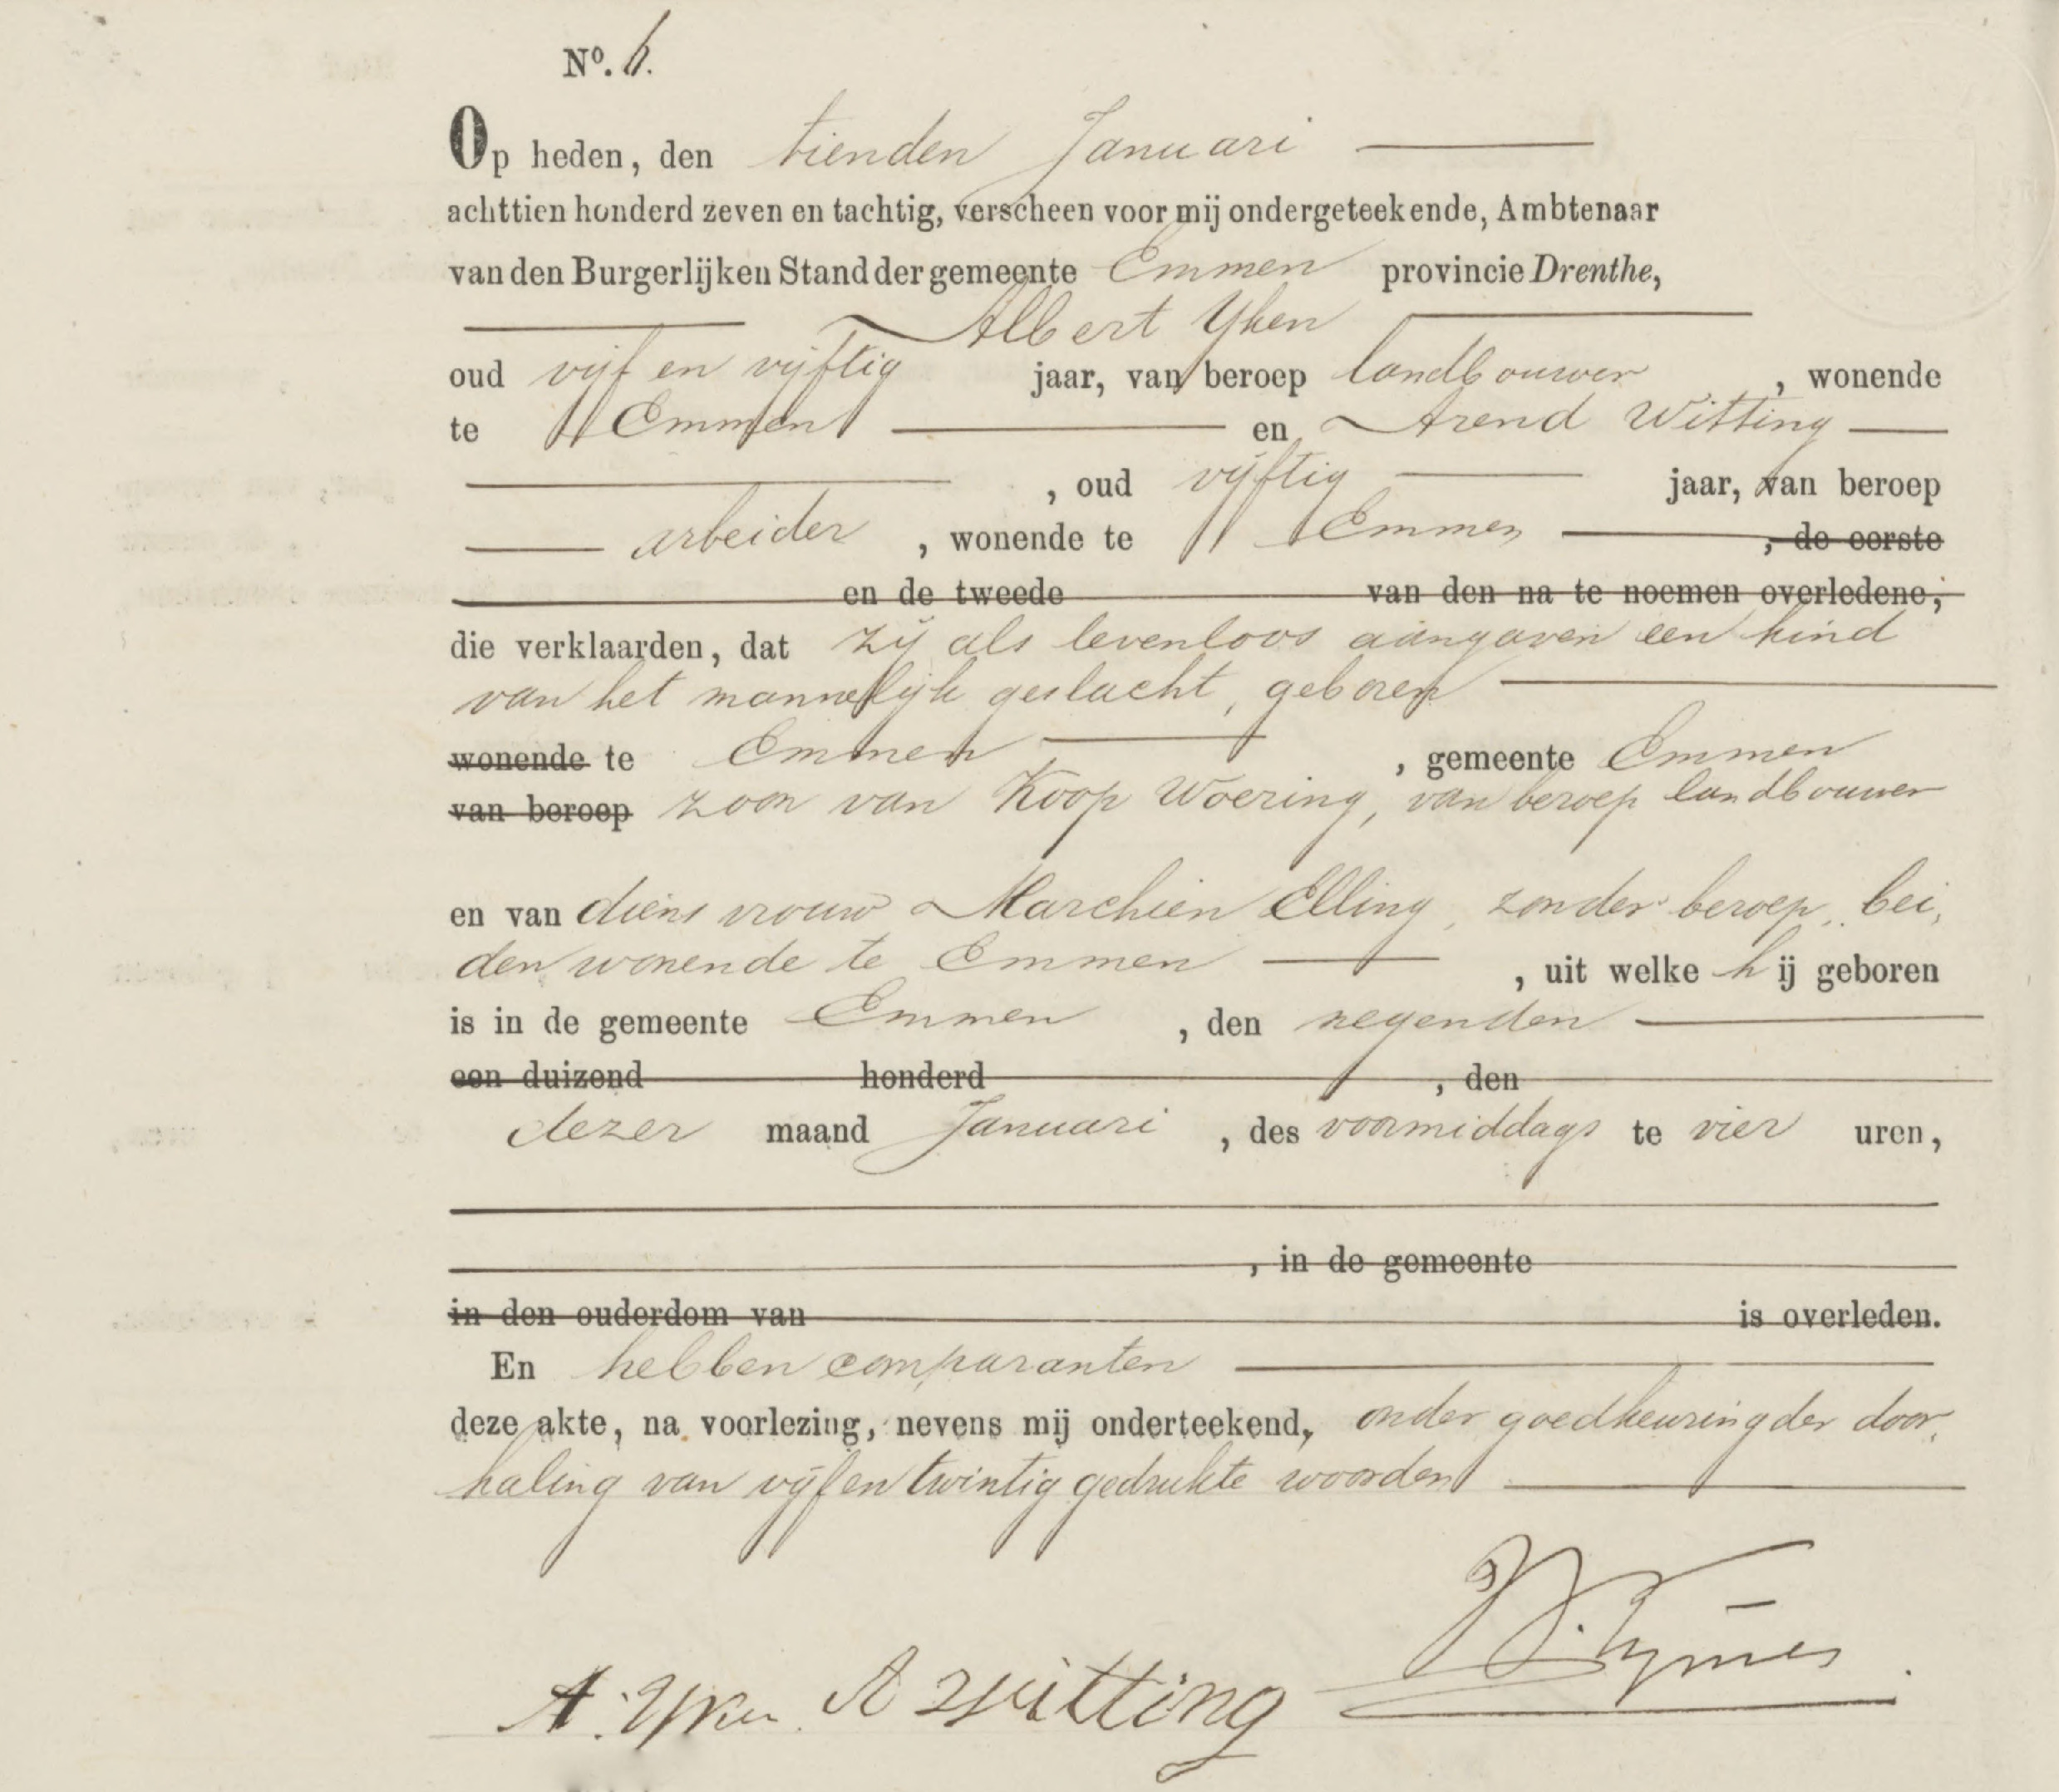 Nº. 6.
Op heden, den tienden Januari
achttien honderd zeven en tachtig, verscheen voor mij ondergeteekende, Ambtenaar
van den Burgerlijken Stand der gemeente Emmen provincie Drenthe,
Albert Yken
oud vijf en vijftig jaar, van beroep landbouwer, wonende
te Emmen en Arend Witting
, oud vijftig jaar, van beroep
arbeider, wonende te Emmen, de eerste
en de tweede van den na te noemen overledene,
die verklaarden, dat zij als levenloos aangaven een kind
van het mannelijk geslacht, geboren
wonende te Emmen, gemeente Emmen
van beroep zoon van Koop Woering, van beroep landbouwer
en van diens vrouw Marchien Elling, zonder beroep, bei,
den wonende te Emmen, uit welke hij geboren
is in de gemeente Emmen, den negenden
een duizend honderd, den
dezer maand Januari, des voormiddags te vier uren,
, in de gemeente
in den ouderdom van is overleden.
En hebben comparanten
deze akte, na voorlezing, nevens mij onderteekend, onder goedkeuring der door,
haling van vijf en twintig gedrukte woorden
A. Yken. A Witting